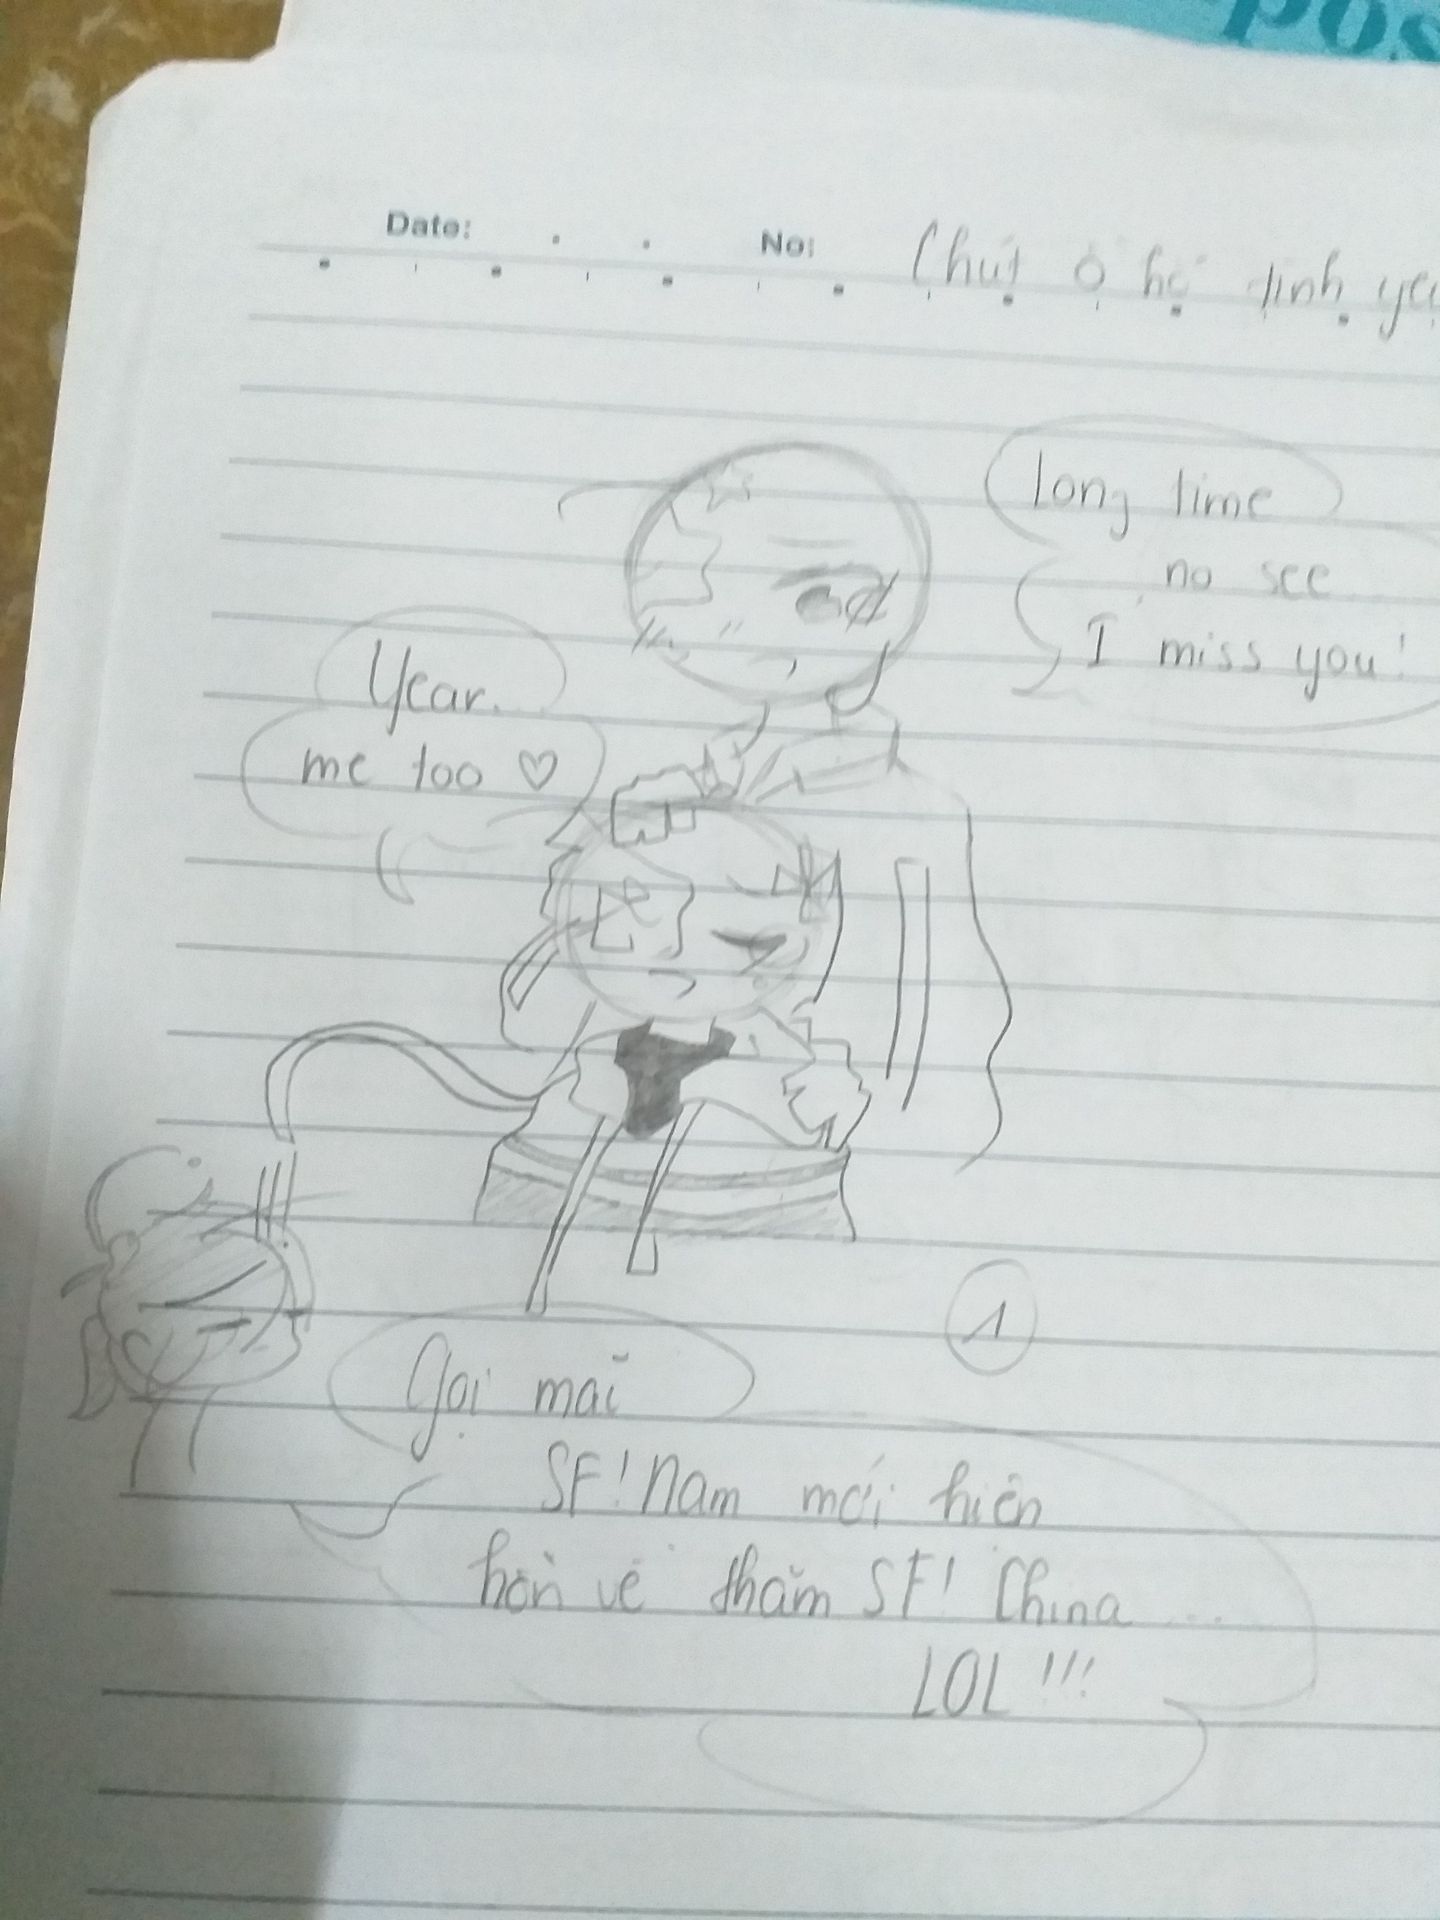 pos
Date: No: Chút ô hệ tình yê
long time
no see
I miss you!
Year.
me too ♡
1
Gọi mãi
SF! Nam mới hiện
hồn về thăm SF! China...
LOL!!!